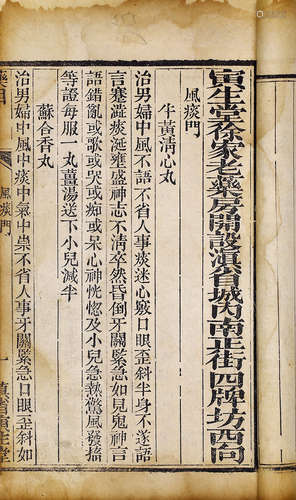 寅生堂徐家老藥房開設滇省城內南正街四牌坊西向
風痰門
牛黃清心丸
治男婦中風不語不省人事痰迷心竅口眼歪斜半身不遂語
言蹇澁痰涎壅盛神志不清卒然昏倒牙關緊急如見鬼神言
語錯亂或歌或哭或痴或呆心神恍惚及小兒急熱驚風發搐
等證每服一丸薑湯送下小兒減半
蘇合香丸
治男婦中風中痰中氣中祟不省人事牙關緊急口眼歪斜如
風痰門
一